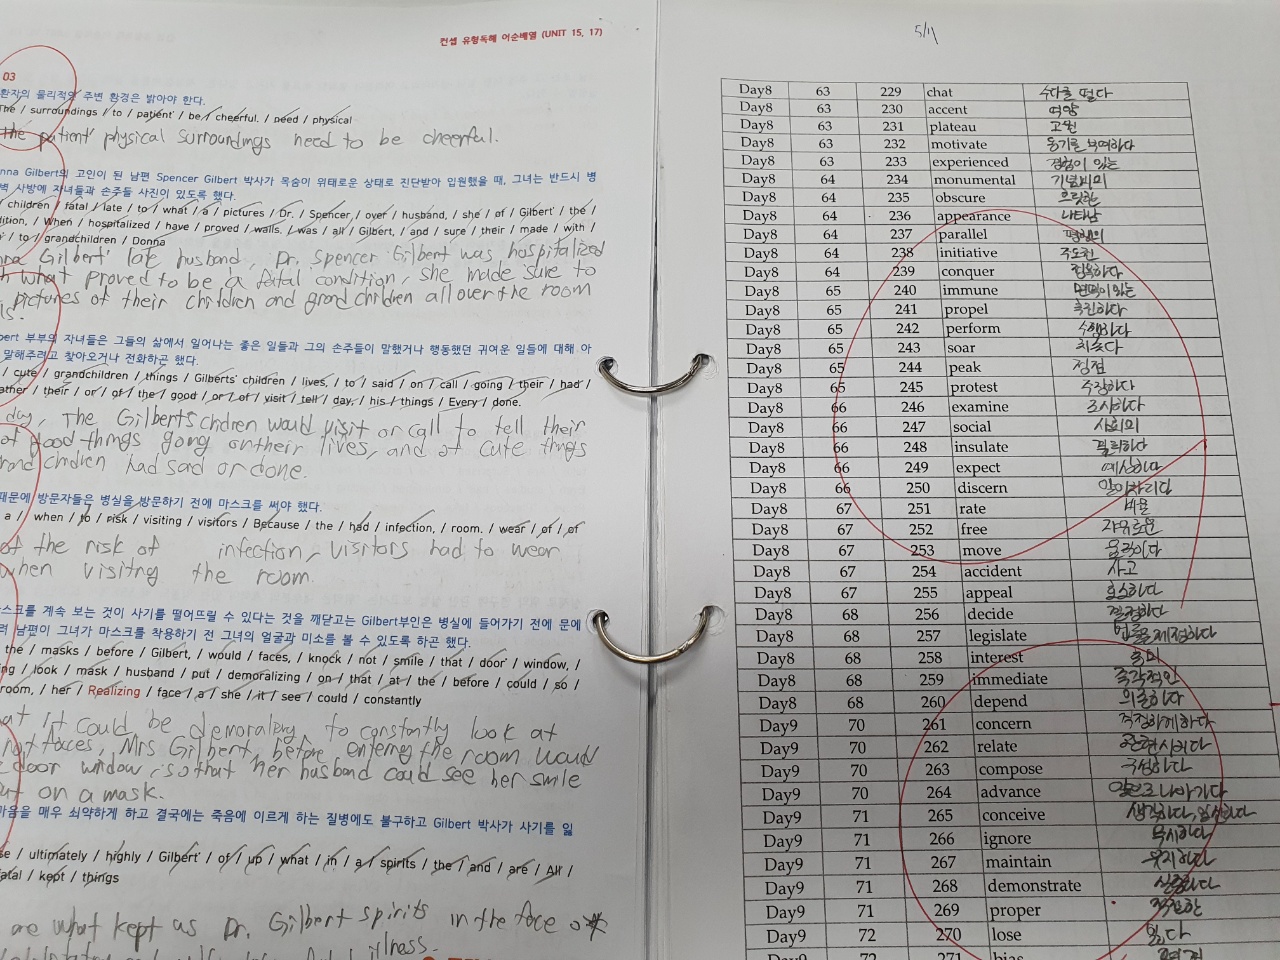 컨셉 유형독해 어순배열 (UNIT 15, 17)
03
환자의 물리적인 주변 환경은 밝아야 한다.
The / surroundings / to / patient' / be / cheerful. / need / physical
the patient' physical surroundings need to be cheerful.
nna Gilbert의 고인이 된 남편 Spencer Gilbert 박사가 목숨이 위태로운 상태로 진단받아 입원했을 때, 그녀는 반드시 병
벽 사방에 자녀들과 손주들 사진이 있도록 했다.
children / fatal / late / to / what / a / pictures / Dr. / Spencer / over / husband, / she / of / Gilbert' / the /
ition, / When / hospitalized / have / proved / walls. / was / all / Gilbert, / and / sure / their / made / with /
' / to / grandchildren / Donna
nna Gilbert' late husband, Dr. Spencer Gilbert was hospitalized
h what proved to be a fatal condition, she made sure to
pictures of their children and grand children all over the room
ls.
bert 부부의 자녀들은 그들의 삶에서 일어나는 좋은 일들과 그의 손주들이 말했거나 행동했던 귀여운 일들에 대해 아
말해주려고 찾아오거나 전화하곤 했다.
/ cute / grandchildren / things / Gilberts' children / lives, / to / said / on / call / going / their / had /
ather / their / or / of / the / good / or / of / visit / tell / day, / his / things / Every / done.
day, The Gilberts children would visit or call to tell their
of good things going on their lives, and of cute things
rand children had said or done.
때문에 방문자들은 병실을 방문하기 전에 마스크를 써야 했다.
a / when / to / risk / visiting / visitors / Because / the / had / infection, / room. / wear / of / of
of the risk of infection, visitors had to wear
when visiting the room.
스크를 계속 보는 것이 사기를 떨어뜨릴 수 있다는 것을 깨닫고는 Gilbert부인은 병실에 들어가기 전에 문에
려 남편이 그녀가 마스크를 착용하기 전 그녀의 얼굴과 미소를 볼 수 있도록 하곤 했다.
the / masks / before / Gilbert, / would / faces, / knock / not / smile / that / door' / window, /
ng / look / mask / husband / put / demoralizing / on / that / at / the / before / could / so /
room, / her / Realizing / face / a / she / it / see / could / constantly
at it could be demoralizng to constantly look at
not faces, Mrs Gilbert, before entering the room would
door window, so that her husband could see her smile
ut on a mask.
마음을 매우 쇠약하게 하고 결국에는 죽음에 이르게 하는 질병에도 불구하고 Gilbert 박사가 사기를 잃
se / ultimately / highly / Gilbert' / of / up / what / in / a / spirits / the / and / are / All /
fatal / kept / things
are what kept as Dr. Gilbert spirits in the face of
illness.
5/11
Day8 63 229 chat 수다를 떨다
Day8 63 230 accent 억양
Day8 63 231 plateau 고원
Day8 63 232 motivate 동기를 부여하다
Day8 63 233 experienced 경험이 있는
Day8 64 234 monumental 기념비의
Day8 64 235 obscure
Day8 64 236 appearance 나타남
Day8 64 237 parallel 평행의
Day8 64 238 initiative 주도권
Day8 64 239 conquer 정복하다
Day8 65 240 immune 면역이 있는
Day8 65 241 propel 추진하다
Day8 65 242 perform 수행하다
Day8 65 243 soar 치솟다
Day8 65 244 peak 정점
Day8 65 245 protest 주장하다
Day8 66 246 examine 조사하다
Day8 66 247 social 사회의
Day8 66 248 insulate 분리하다
Day8 66 249 expect 예상하다
Day8 66 250 discern 알아차리다
Day8 67 251 rate 비율
Day8 67 252 free 자유로운
Day8 67 253 move 움직이다
Day8 67 254 accident 사고
Day8 67 255 appeal 호소하다
Day8 68 256 decide 결정하다
Day8 68 257 legislate 법률을 제정하다
Day8 68 258 interest 흥미
Day8 68 259 immediate 즉각적인
Day8 68 260 depend 의존하다
Day9 70 261 concern 걱정하게 하다
Day9 70 262 relate 관련시키다
Day9 70 263 compose 구성하다
Day9 70 264 advance 앞으로 나아가다
Day9 71 265 conceive 생각하다, 임신하다
Day9 71 266 ignore 무시하다
Day9 71 267 maintain 유지하다
Day9 71 268 demonstrate 실증하다
Day9 71 269 proper 적절한
Day9 72 270 lose 잃다
Day9 72 271 bias 편견